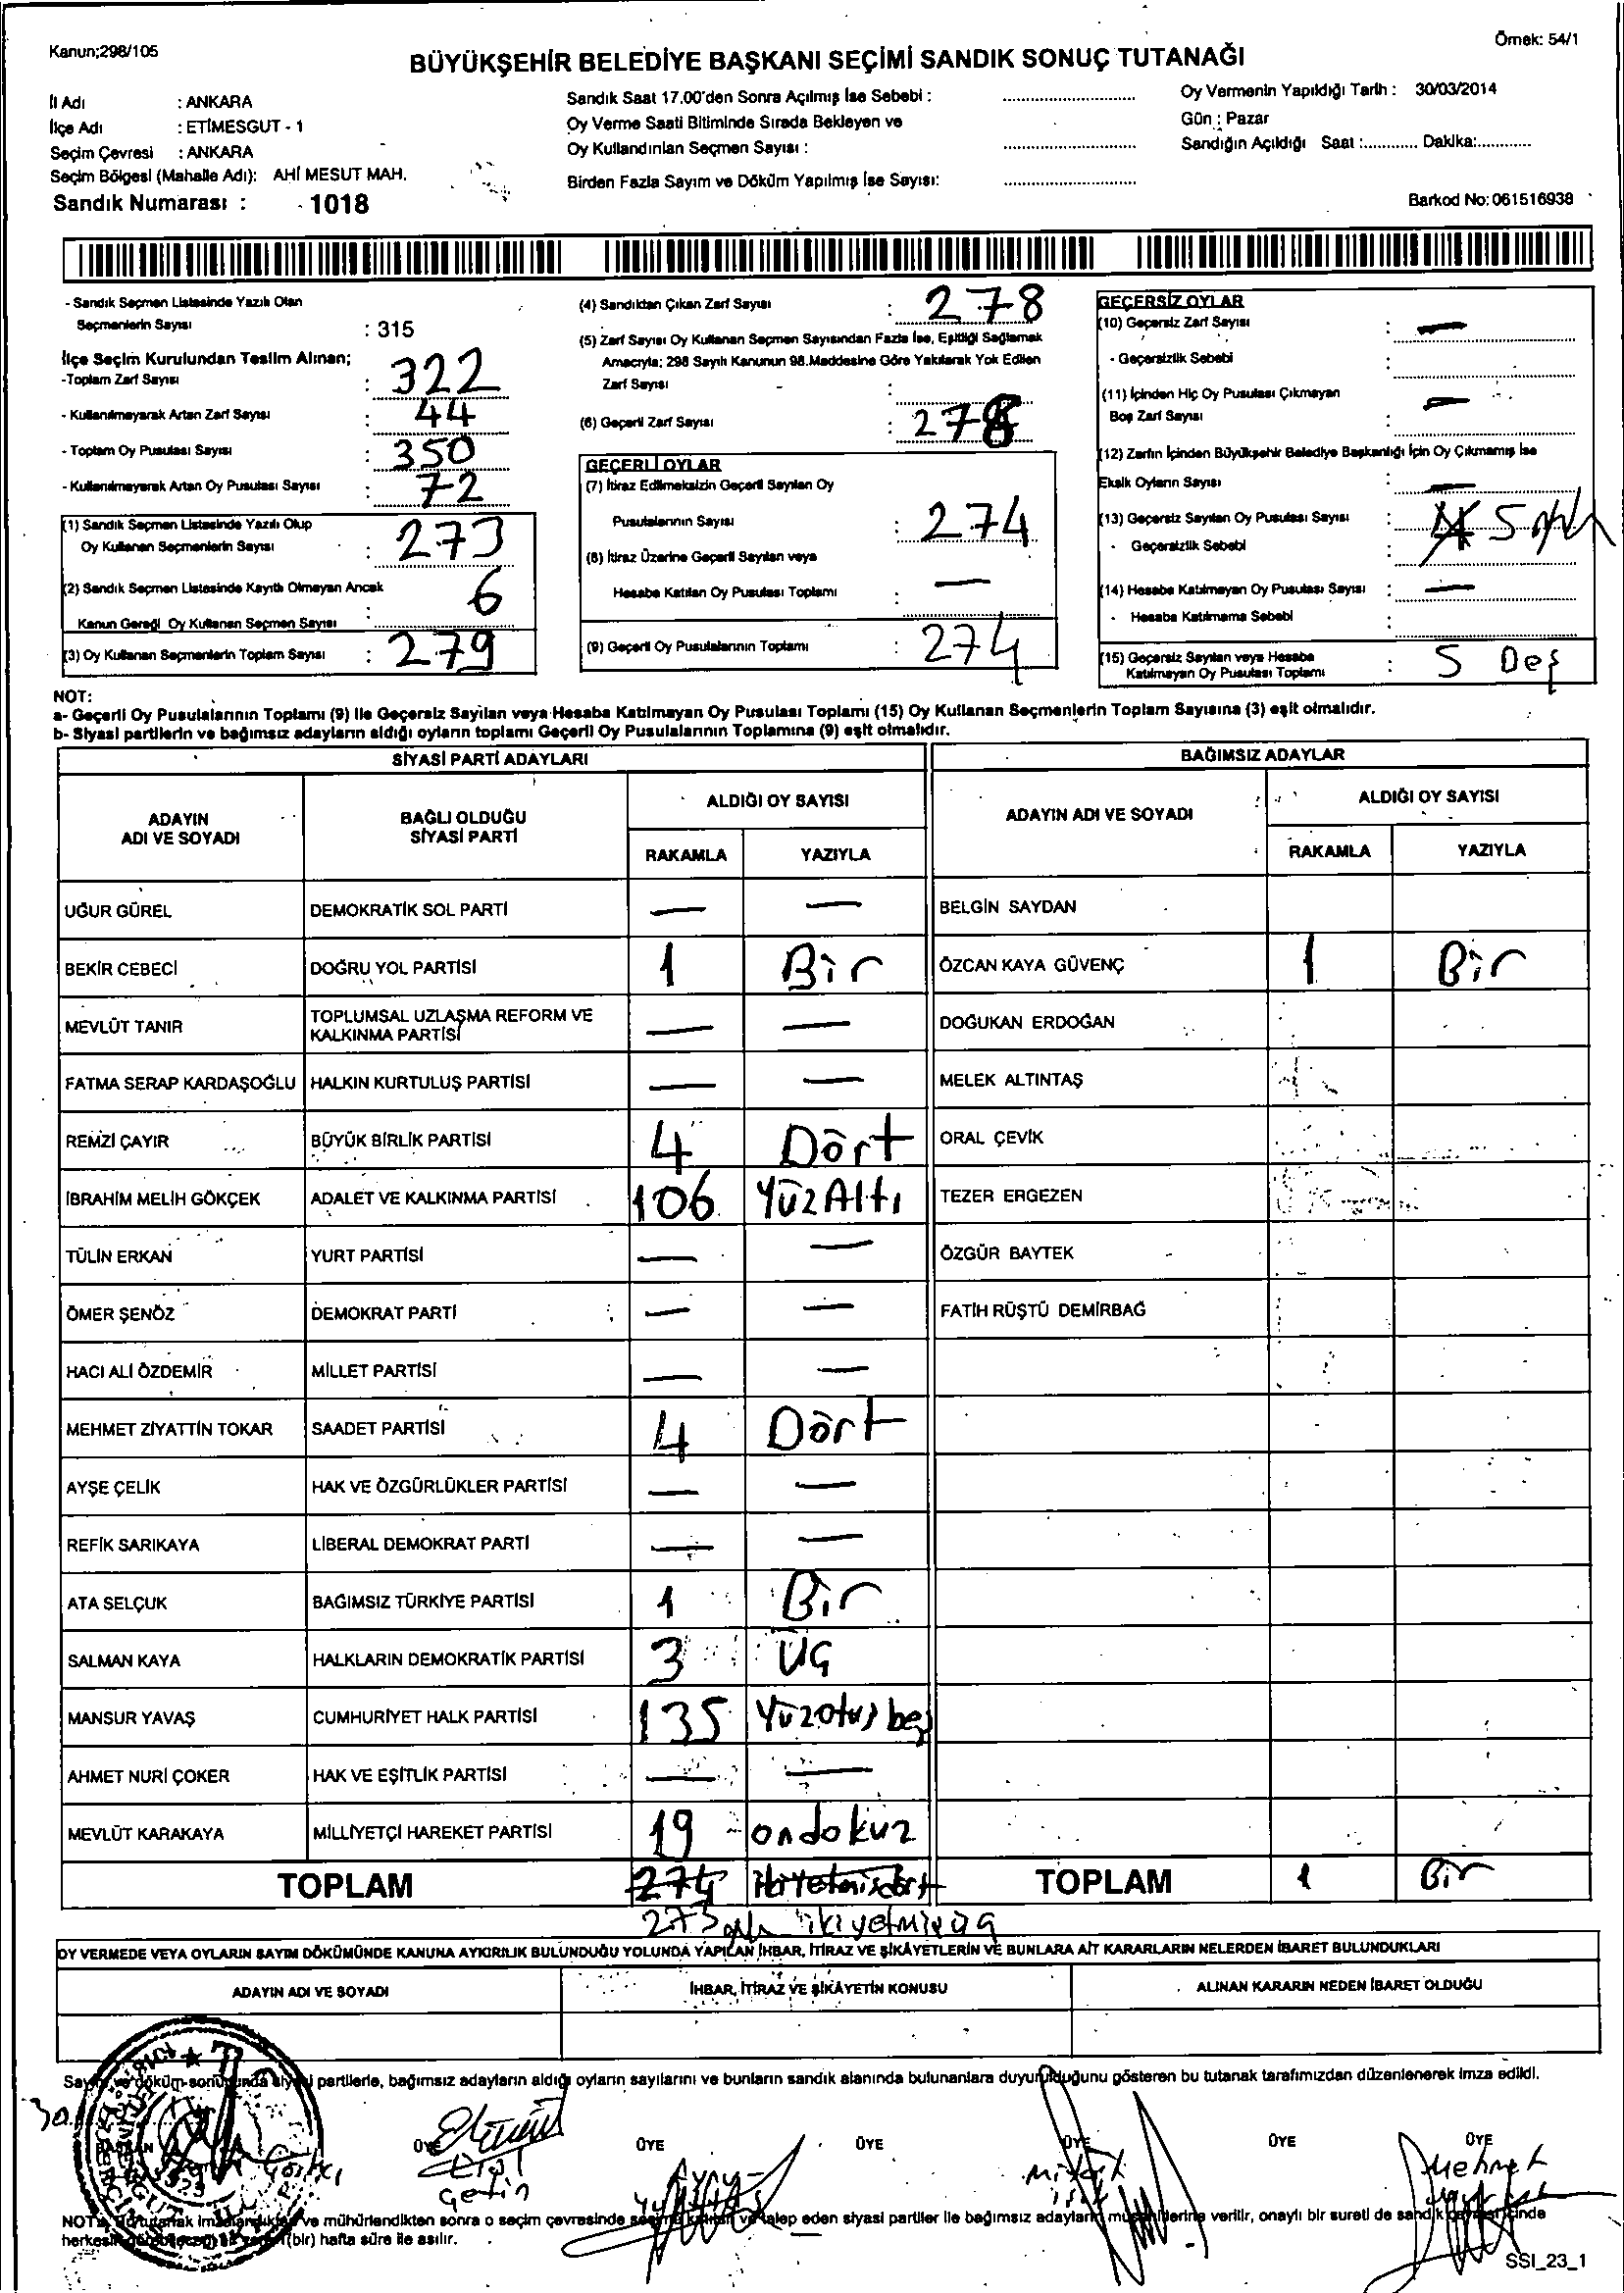 Kanun;298/105
Örnek: 54/1
BÜYÜKŞEHİR BELEDİYE BAŞKANI SEÇİMİ SANDIK SONUÇ TUTANAĞI
İl Adı : ANKARA
İlçe Adı : ETİMESGUT - 1
Seçim Çevresi : ANKARA
Seçim Bölgesi (Mahalle Adı): AHİ MESUT MAH.
Sandık Numarası : 1018
Sandık Saat 17.00'den Sonra Açılmış İse Sebebi :
Oy Verme Saati Bitiminde Sırada Bekleyen ve
Oy Kullandırılan Seçmen Sayısı :
Birden Fazla Sayım ve Döküm Yapılmış İse Sayısı:
Oy Vermenin Yapıldığı Tarih : 30/03/2014
Gün : Pazar
Sandığın Açıldığı Saat :............ Dakika:............
Barkod No: 061516938
- Sandık Seçmen Listesinde Yazılı Olan
Seçmenlerin Sayısı : 315
İlçe Seçim Kurulundan Teslim Alınan;
-Toplam Zarf Sayısı : 322
- Kullanılmayarak Artan Zarf Sayısı : 44
- Toplam Oy Pusulası Sayısı : 350
- Kullanılmayarak Artan Oy Pusulası Sayısı : 72
(1) Sandık Seçmen Listesinde Yazılı Olup
Oy Kullanan Seçmenlerin Sayısı : 273
(2) Sandık Seçmen Listesinde Kayıtlı Olmayan Ancak
Kanun Gereği Oy Kullanan Seçmen Sayısı : 6
(3) Oy Kullanan Seçmenlerin Toplam Sayısı : 279
(4) Sandıktan Çıkan Zarf Sayısı : 278
(5) Zarf Sayısı Oy Kullanan Seçmen Sayısından Fazla İse, Eşitliği Sağlamak
Amacıyla; 298 Sayılı Kanunun 98.Maddesine Göre Yakılarak Yok Edilen
Zarf Sayısı :
(6) Geçerli Zarf Sayısı : 278
GEÇERLİ OYLAR
(7) İtiraz Edilmeksizin Geçerli Sayılan Oy
Pusulalarının Sayısı : 274
(8) İtiraz Üzerine Geçerli Sayılan veya
Hesaba Katılan Oy Pusulası Toplamı : —
(9) Geçerli Oy Pusulalarının Toplamı : 274
GEÇERSİZ OYLAR
(10) Geçersiz Zarf Sayısı : —
- Geçersizlik Sebebi :
(11) İçinden Hiç Oy Pusulası Çıkmayan
Boş Zarf Sayısı : —
(12) Zarfın İçinden Büyükşehir Belediye Başkanlığı İçin Oy Çıkmamış İse
Eksik Oyların Sayısı : —
(13) Geçersiz Sayılan Oy Pusulası Sayısı : 5
- Geçersizlik Sebebi :
(14) Hesaba Katılmayan Oy Pusulası Sayısı : —
- Hesaba Katılmama Sebebi :
(15) Geçersiz Sayılan veya Hesaba
Katılmayan Oy Pusulası Toplamı : 5 Beş
NOT:
a- Geçerli Oy Pusulalarının Toplamı (9) ile Geçersiz Sayılan veya Hesaba Katılmayan Oy Pusulası Toplamı (15) Oy Kullanan Seçmenlerin Toplam Sayısına (3) eşit olmalıdır.
b- Siyasi partilerin ve bağımsız adayların aldığı oyların toplamı Geçerli Oy Pusulalarının Toplamına (9) eşit olmalıdır.
SİYASİ PARTİ ADAYLARI
ADAYIN ADI VE SOYADI
BAĞLI OLDUĞU SİYASİ PARTİ
ALDIĞI OY SAYISI
RAKAMLA YAZIYLA
UĞUR GÜREL DEMOKRATİK SOL PARTİ — —
BEKİR CEBECİ DOĞRU YOL PARTİSİ 1 Bir
MEVLÜT TANIR TOPLUMSAL UZLAŞMA REFORM VE KALKINMA PARTİSİ — —
FATMA SERAP KARDAŞOĞLU HALKIN KURTULUŞ PARTİSİ — —
REMZİ ÇAYIR BÜYÜK BİRLİK PARTİSİ 4 Dört
İBRAHİM MELİH GÖKÇEK ADALET VE KALKINMA PARTİSİ 106 YüzAltı
TÜLİN ERKAN YURT PARTİSİ — —
ÖMER ŞENÖZ DEMOKRAT PARTİ — —
HACI ALİ ÖZDEMİR MİLLET PARTİSİ — —
MEHMET ZİYATTİN TOKAR SAADET PARTİSİ 4 Dört
AYŞE ÇELİK HAK VE ÖZGÜRLÜKLER PARTİSİ — —
REFİK SARIKAYA LİBERAL DEMOKRAT PARTİ — —
ATA SELÇUK BAĞIMSIZ TÜRKİYE PARTİSİ 1 Bir
SALMAN KAYA HALKLARIN DEMOKRATİK PARTİSİ 3 Üç
MANSUR YAVAŞ CUMHURİYET HALK PARTİSİ 135 Yüzotuzbeş
AHMET NURİ ÇOKER HAK VE EŞİTLİK PARTİSİ — —
MEVLÜT KARAKAYA MİLLİYETÇİ HAREKET PARTİSİ 19 ondokuz
TOPLAM 274 ikiyetmişdört
273 ikiyetmişüç
BAĞIMSIZ ADAYLAR
ADAYIN ADI VE SOYADI
ALDIĞI OY SAYISI
RAKAMLA YAZIYLA
BELGİN SAYDAN
ÖZCAN KAYA GÜVENÇ 1 Bir
DOĞUKAN ERDOĞAN
MELEK ALTINTAŞ
ORAL ÇEVİK
TEZER ERGEZEN
ÖZGÜR BAYTEK
FATİH RÜŞTÜ DEMİRBAĞ
TOPLAM 1 Bir
OY VERMEDE VEYA OYLARIN SAYIM DÖKÜMÜNDE KANUNA AYKIRILIK BULUNDUĞU YOLUNDA YAPILAN İHBAR, İTİRAZ VE ŞİKÂYETLERİN VE BUNLARA AİT KARARLARIN NELERDEN İBARET BULUNDUKLARI
ADAYIN ADI VE SOYADI İHBAR, İTİRAZ VE ŞİKÂYETİN KONUSU ALINAN KARARIN NEDEN İBARET OLDUĞU
Sayım ve döküm sonucunda siyasi partilerle, bağımsız adayların aldığı oyların sayılarını ve bunların sandık alanında bulunanlara duyurulduğunu gösteren bu tutanak tarafımızdan düzenlenerek imza edildi.
BAŞKAN ÜYE ÜYE ÜYE ÜYE ÜYE ÜYE
Çetin
Mehmet
NOT: ve mühürlendikten sonra o seçim çevresinde seçime katılan ve talep eden siyasi partiler ile bağımsız adayların müşahitlerine verilir, onaylı bir sureti de sandık çevresi içinde
(bir) hafta süre ile asılır.
SSI_23_1